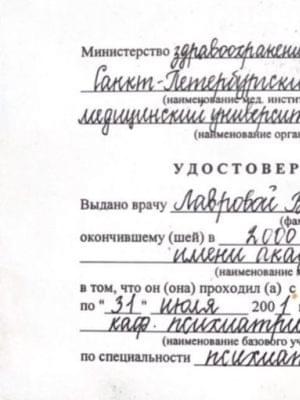 Министерство здравоохранени
Санкт-Петербургски
(наименование мед. инсти
медицинский университ
(наименование орган
УДОСТОВЕР
Выдано врачу Лавровой В
(фа
окончившему (шей) в 2000
имени ака
(наименование
в том, что он (она) проходил (а) с
по "31" июля 2001
каф. психиатри
(наименование базового уч
по специальности психиат